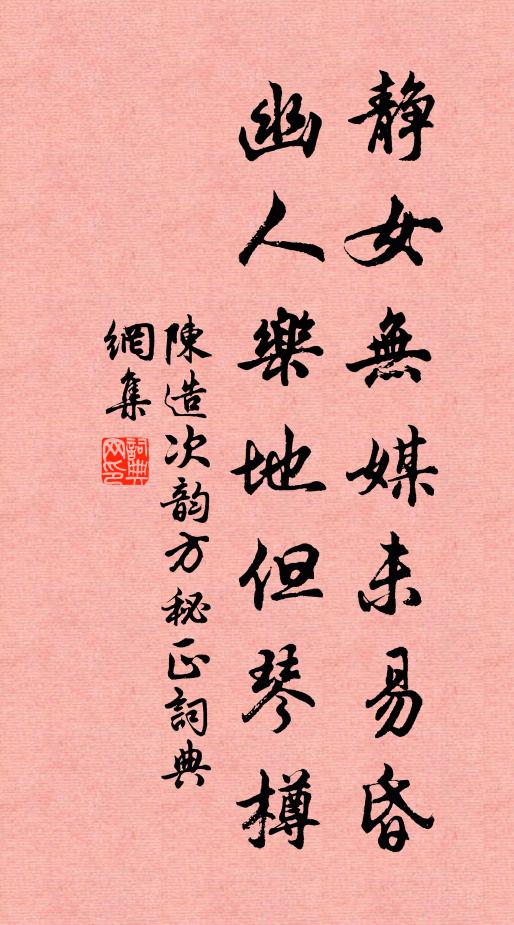 静女無媒未易昏
幽人樂地但琴樽
陳造次韵方秘正詞典
網集
詞典網印